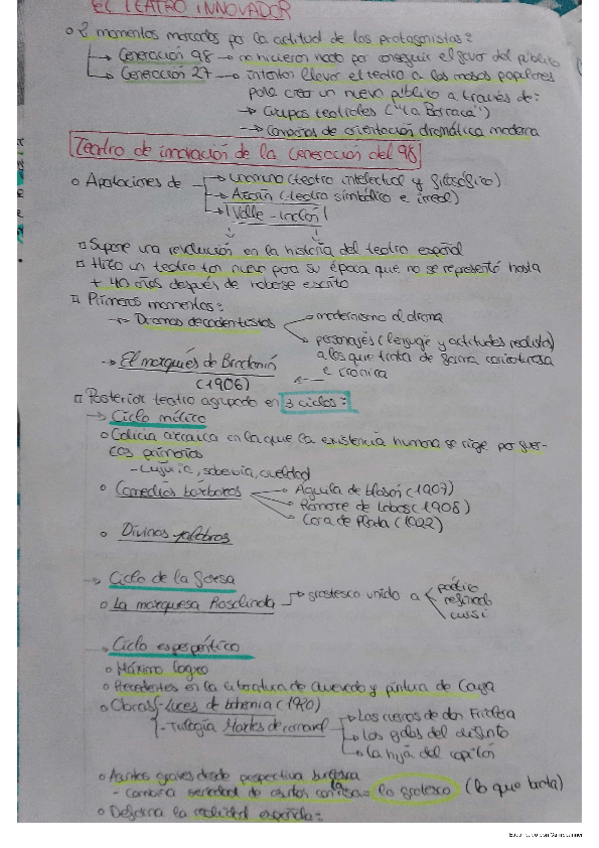 EL TEATRO INNOVADOR
2 momentos marcados por la actitud de los protagonistas:
Generación 98 → no hicieron nada por conseguir el favor del público
Generación 27 → intentan llevar el teatro a las masas populares
para crear un nuevo público a través de:
→ Grupos teatrales ("La Barraca")
→ Campañas de orientación dramática moderna
Teatro de innovación de la Generación del 98
Aportaciones de → Unamuno (teatro intelectual y filosófico)
→ Azorín (teatro simbólico e irreal)
→ ¡Valle-Inclán!
Supone una revolución en la historia del teatro español
Hizo un teatro tan nuevo para su época que no se representó hasta
+ 40 años después de haberse escrito
Primeros momentos:
→ Dramas decadentistas
modernismo al drama
personajes (lenguaje y actitudes realista)
a los que trata de forma caricaturesca
e irónica
→ El marqués de Bradomín
(1906)
Posterior teatro agrupado en 3 ciclos:
→ Ciclo mítico
Galicia arcaica en la que la existencia humana se rige por fuer-
zas primarias
- Lujuria, soberbia, crueldad
Comedias bárbaras
Águila de blasón (1907)
Romance de lobos (1908)
Cara de Plata (1922)
Divinas palabras
→ Ciclo de la farsa
La marquesa Rosalinda → grotesco unido a
poético
refinado
cursi
→ Ciclo esperpéntico
Máximo logro
Precedentes en la literatura de Quevedo y pintura de Goya
Obras - Luces de bohemia (1920)
- Trilogía Martes de carnaval
Los cuernos de don Friolera
Las galas del difunto
La hija del capitán
Asuntos graves desde perspectiva burlesca
- combina seriedad de asuntos con risa = lo grotesco (lo que trata)
Deforma la realidad española: